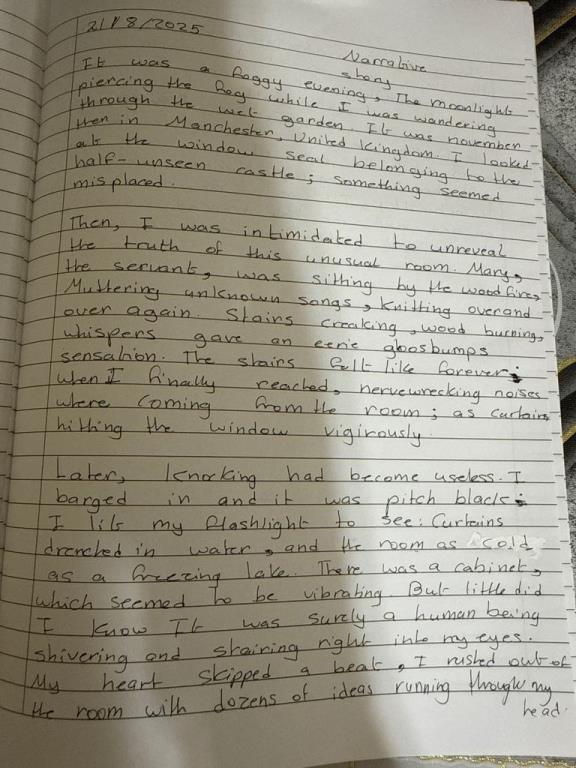 21/8/2025
Narrative
story
It was a foggy evening, The moonlight
piercing the fog while I was wandering
through the wet garden. It was november
then in Manchester, United Kingdom. I looked
at the window seat belonging to the
half-unseen castle; something seemed
misplaced.
Then, I was intimidated to unreveal
the truth of this unusual room. Mary,
the servant, was sitting by the wood fire,
Muttering unknown songs, knitting over and
over again. Stairs creaking, wood burning,
whispers gave an eerie goosbumps
sensation. The stairs felt like forever;
when I finally reached, nervewrecking noises
where coming from the room; as curtains
hitting the window vigirously.
Later, knocking had become useless. I
barged in and it was pitch black;
I lit my flashlight to see: Curtains
drenched in water, and the room as cold
as a freezing lake. There was a cabinet,
which seemed to be vibrating. But little did
I know It was surely a human being
shivering and stairing right into my eyes.
My heart skipped a beat, I rushed out of
the room with dozens of ideas running through my
head.